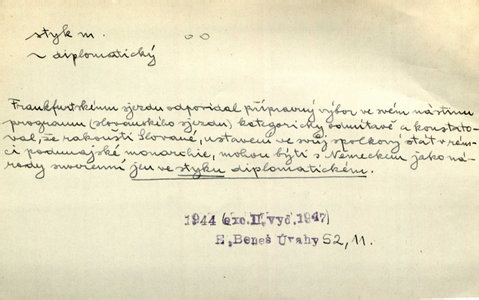 styk m.
~ diplomatický
Frankfurtskému sjezdu odpovídal přípravný výbor ve svém nástinu
programu (slovanského sjezdu) kategoricky odmítavě a konstato-
val, že rakouští Slované, ustaveni ve svůj spolkový stát v rám-
ci podunajské monarchie, mohou býti s Německem jako ná-
rody suverenní jen ve styku diplomatickém.
1944 (exc. II. vyd. 1947)
E. Beneš Úvahy 52, 11.